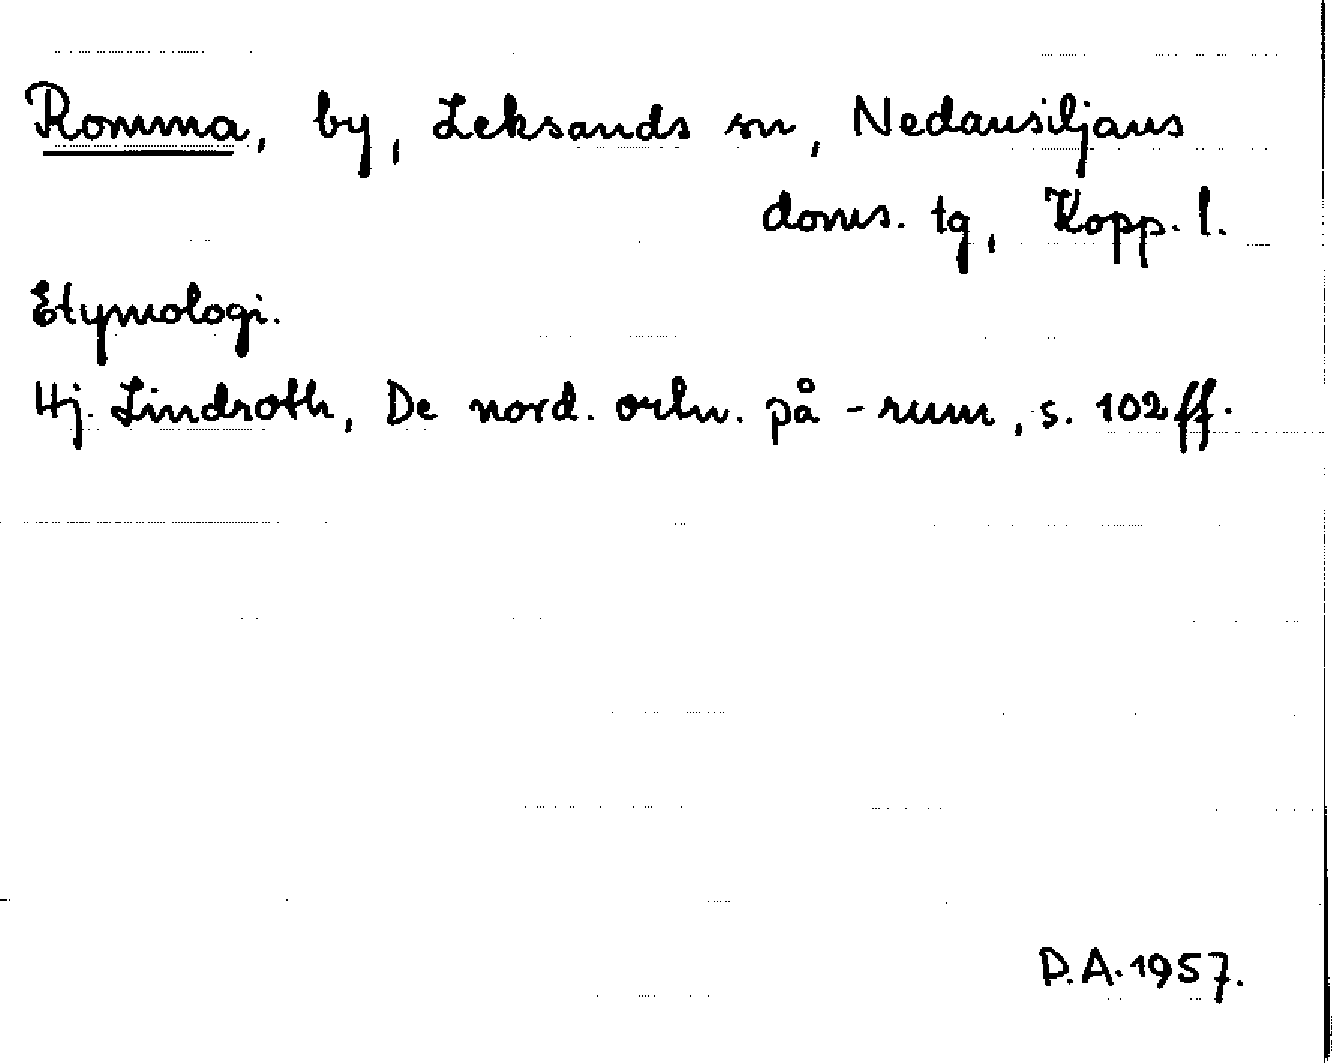 Romma, by, Leksands sn, Nedansiljans
doms. tg, Kopp. l.
Etymologi.
Hj. Lindroth, De nord. ortn. på -rum, s. 102 ff.
D.A. 1957.